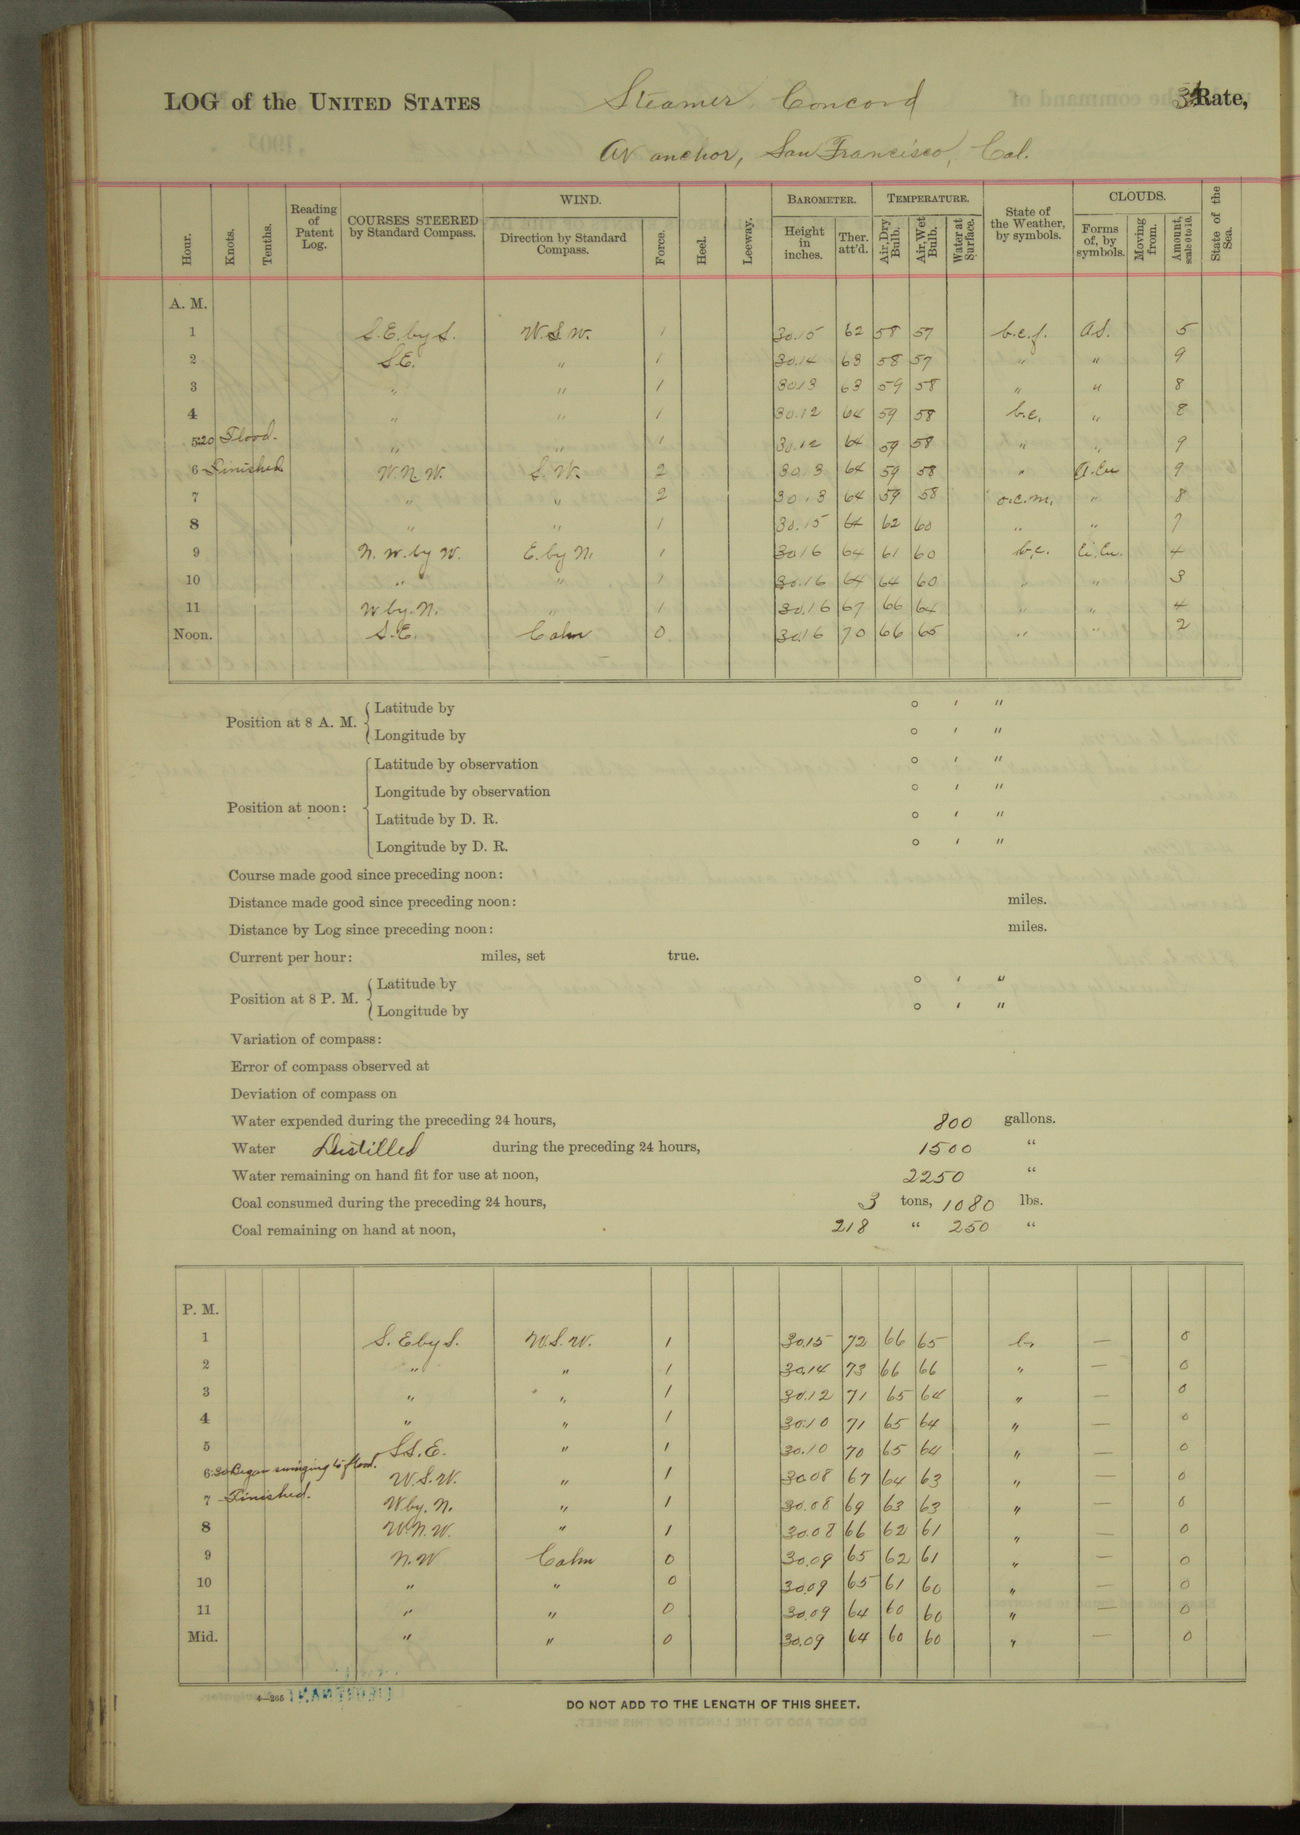 LOG of the UNITED STATES Steamer Concord 3d Rate,
At anchor, San Francisco, Cal.
Hour. Knots. Tenths. Reading of Patent Log. COURSES STEERED by Standard Compass. WIND. Direction by Standard Compass. Force. Heel. Leeway. BAROMETER. Height in inches. Ther. att'd. TEMPERATURE. Air, Dry Bulb. Air, Wet Bulb. Water at Surface. State of the Weather, by symbols. CLOUDS. Forms of, by symbols. Moving from. Amount, scale 0 to 10. State of the Sea.
A. M.
1 S.E. by S. W.S.W. 1 30.15 62 58 57 b.c.f. A.S. 5
2 S.E. " 1 30.14 63 58 57 " " 9
3 " " 1 30.13 63 59 58 " " 8
4 " " 1 30.12 64 59 58 b.c. " 8
5:20 Flood. " 1 30.12 64 59 58 " " 9
6 Finished W.N.W. S.W. 2 30.3 64 59 58 " A.Cu 9
7 " " 2 30.13 64 59 58 o.c.m. " 8
8 " " 1 30.15 64 62 60 " " 7
9 N.W. by W. E. by N. 1 30.16 64 61 60 b.c. Ci.Cu. 4
10 " " 1 30.16 64 64 60 " " 3
11 W by. N. " 1 30.16 67 66 64 " " 4
Noon. S.E. Calm 0 30.16 70 66 65 " " 2
Position at 8 A. M. Latitude by ° ' "
Longitude by ° ' "
Position at noon: Latitude by observation ° ' "
Longitude by observation ° ' "
Latitude by D. R. ° ' "
Longitude by D. R. ° ' "
Course made good since preceding noon:
Distance made good since preceding noon: miles.
Distance by Log since preceding noon: miles.
Current per hour: miles, set true.
Position at 8 P. M. Latitude by ° ' "
Longitude by ° ' "
Variation of compass:
Error of compass observed at
Deviation of compass on
Water expended during the preceding 24 hours, 800 gallons.
Water Distilled during the preceding 24 hours, 1500 "
Water remaining on hand fit for use at noon, 2250 "
Coal consumed during the preceding 24 hours, 3 tons, 1080 lbs.
Coal remaining on hand at noon, 218 " 250 "
P. M.
1 S. E by S. W.S.W. 1 30.15 72 66 65 b. — 0
2 " " 1 30.14 73 66 66 " — 0
3 " " 1 30.12 71 65 64 " — 0
4 " " 1 30.10 71 65 64 " — 0
5 S.S.E. " 1 30.10 70 65 64 " — 0
6:30 Began swinging to flood. W.S.W. " 1 30.08 67 64 63 " — 0
7 Finished. W by. N. " 1 30.08 69 63 63 " — 0
8 W.N.W. " 1 30.08 66 62 61 " — 0
9 N.W Calm 0 30.09 65 62 61 " — 0
10 " " 0 30.09 65 61 60 " — 0
11 " " 0 30.09 64 60 60 " — 0
Mid. " " 0 30.09 64 60 60 " — 0
4—265
DO NOT ADD TO THE LENGTH OF THIS SHEET.